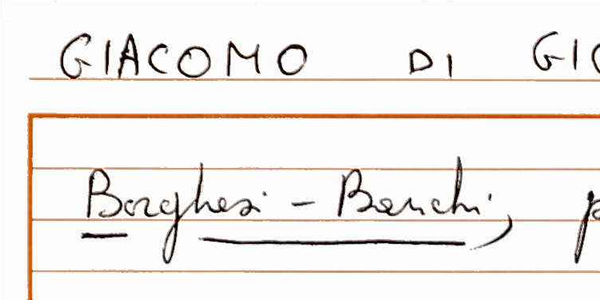 GIACOMO DI GIO
Borghesi - Banchi, p